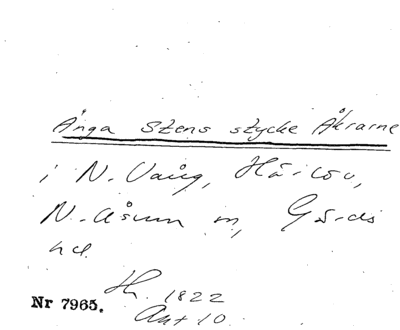 Ånga Stens stycke Åkrarne
i N. Vång,
N. Åsum m, Gärds
hd.
Hh. 1822
Akt 10
Nr 7965.